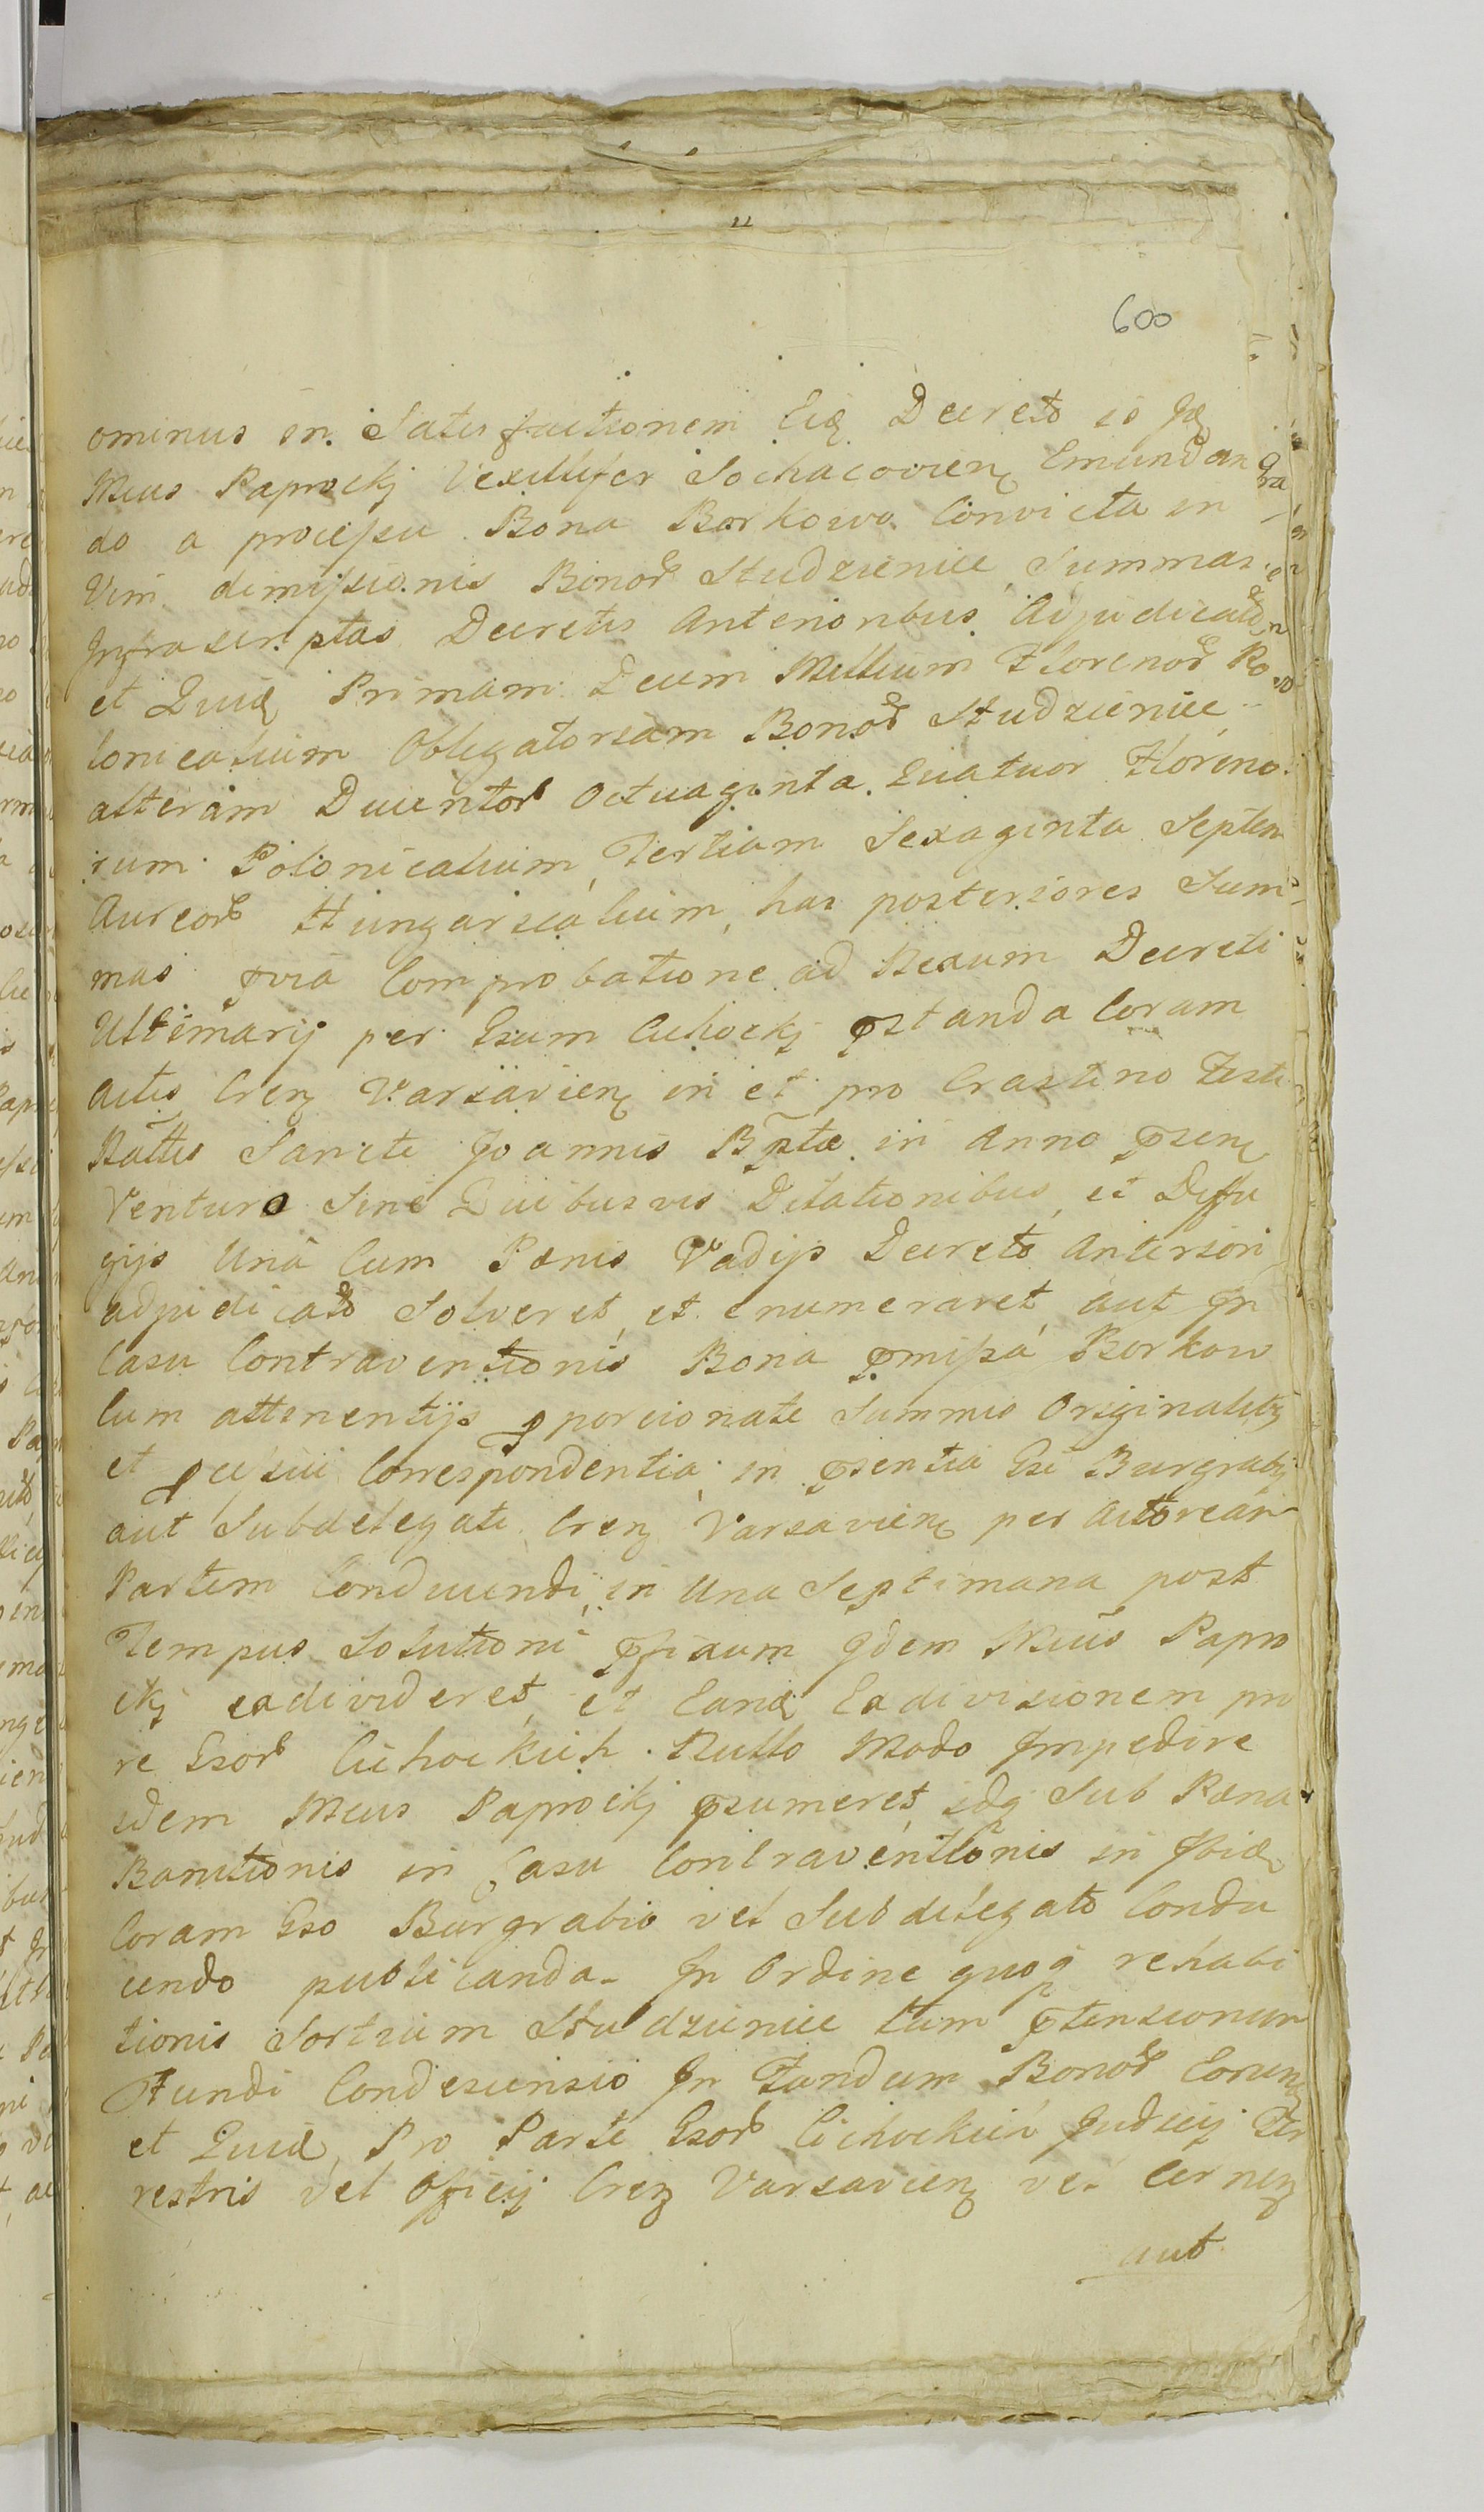 600
ominus in Satisfactionem Eiq Decreto is Jdq
Mcus Paprockj Vexillifer Sochacovienq Emundan
do a processu Bona Borkowo Convicta in
Vim dimissionis Bonor Studzienice Summas
Jnfrascriptas Decretis Anterioribus Adjudicatas
et Quidq Primam Decem Millium Florenor Po
lonicalium Obligatoriam Bonor Studzienice
alteram Ducentor Octuaginta Quatuor Floreno
rum Polonicalium, Tertiam Sexaginta Septem
Aureor Hungaricalium, has posteriores Sum
mas pvia Comprobatione ad Nexum Decreti
Ultimarij per Gsum Cichockj pstanda Coram
actis Crenq Varsavienq in et pro Crastino Festi
Nattis Sancti Joannis Bptae in Anno psenq
Venturo Sine Quibusvis Dilationibus, et Diffu
gijs Una Cum Poenis Vadijs Decreto Anteriori
adjudicatis Solveret, et enumeraret, aut Jn
Casu Contraventionis Bona pmissa Borkow
Cum attinentijs pporcionate Summis Originalibq
et pcisui Correspondentia in psentia Gsi Burgrabij
aut Subdelegati Crenq Varsavienq per Actoream
Partem Conducendi, in Una Septimana post
Tempus Solutioni pfixum Jdem Mcus Papro
ckj exdivideret, et Eandq Exdivisionem pro
re Gsor Cichockich Nullo Modo Jmpedire
idem Mcus Paprockj psumeret, idq Sub Poena
Banitionis in Casu Contraventionis in Jbidq
Coram Gso Burgrabio vel Subdelegato Condu
cendo publicanda. Jn Ordine quoq rehabi
tionis Sortium Studzienice tum ptensionum
Fundi Condescensio Jn Fundum Bonor Eorunq
et Quidq Pro Parte Gsor Cichockich Judicij Ter
restris vel Officij Crenq Varsavienq vel Cernenq
aut